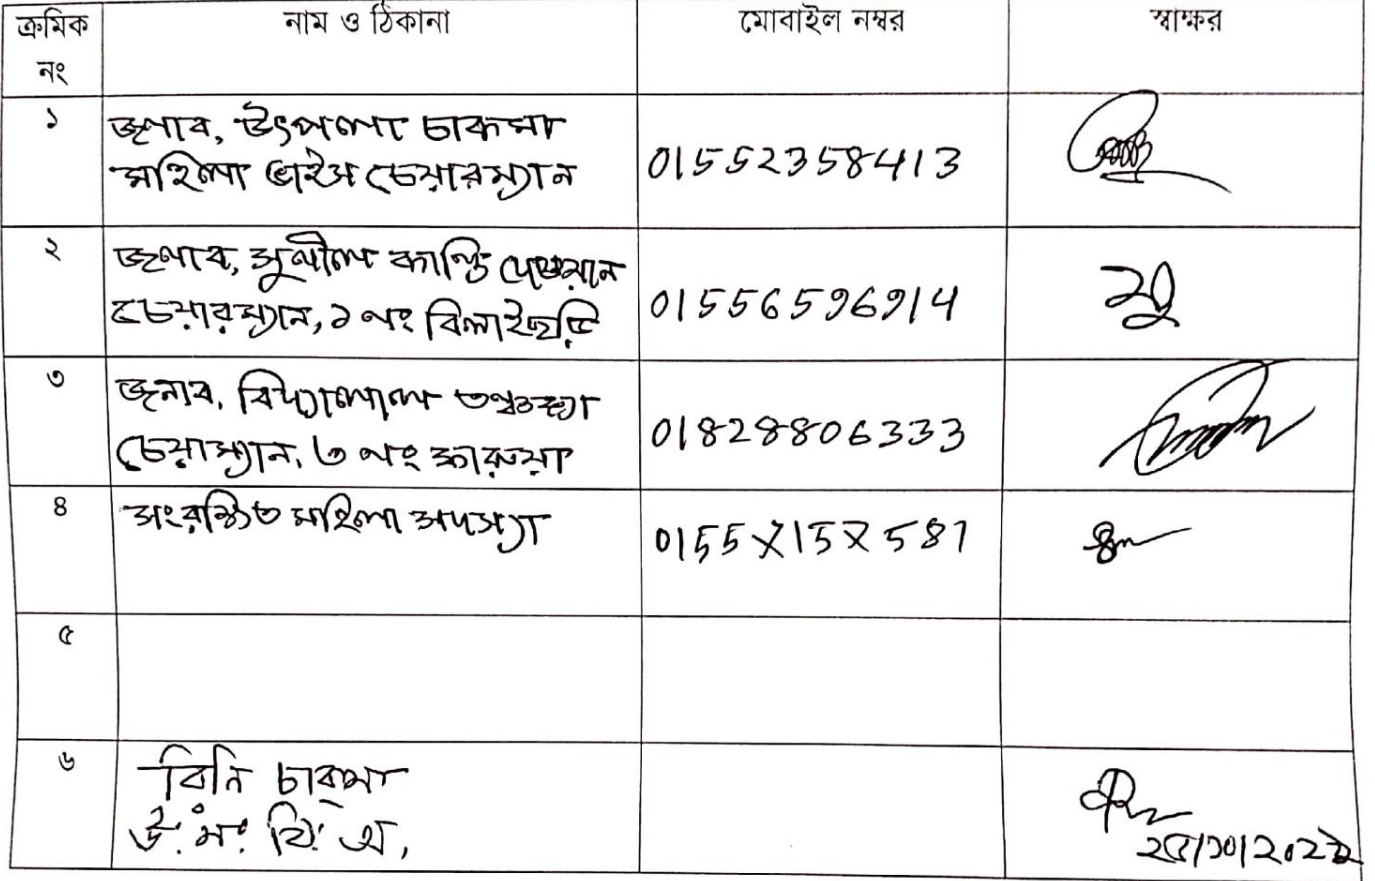 ক্রমিক নং	নাম ও ঠিকানা	মোবাইল নম্বর	স্বাক্ষর
১	জনাব, উৎপলা চাকমা
মহিলা ভাইস চেয়ারম্যান	01552358413
২	জনাব, সুনীল কান্তি দেওয়ান
চেয়ারম্যান, ১ নং বিলাইছড়ি	01556596914
৩	জনাব, বিদ্যালাল তঞ্চঙ্গ্যা
চেয়াম্যান, ৩ নং ফারুয়া	01828806333
৪	সংরক্ষিত মহিলা সদস্যা	0155
৫
৬	বিনি চাকমা
উ: ম: বি: অ,